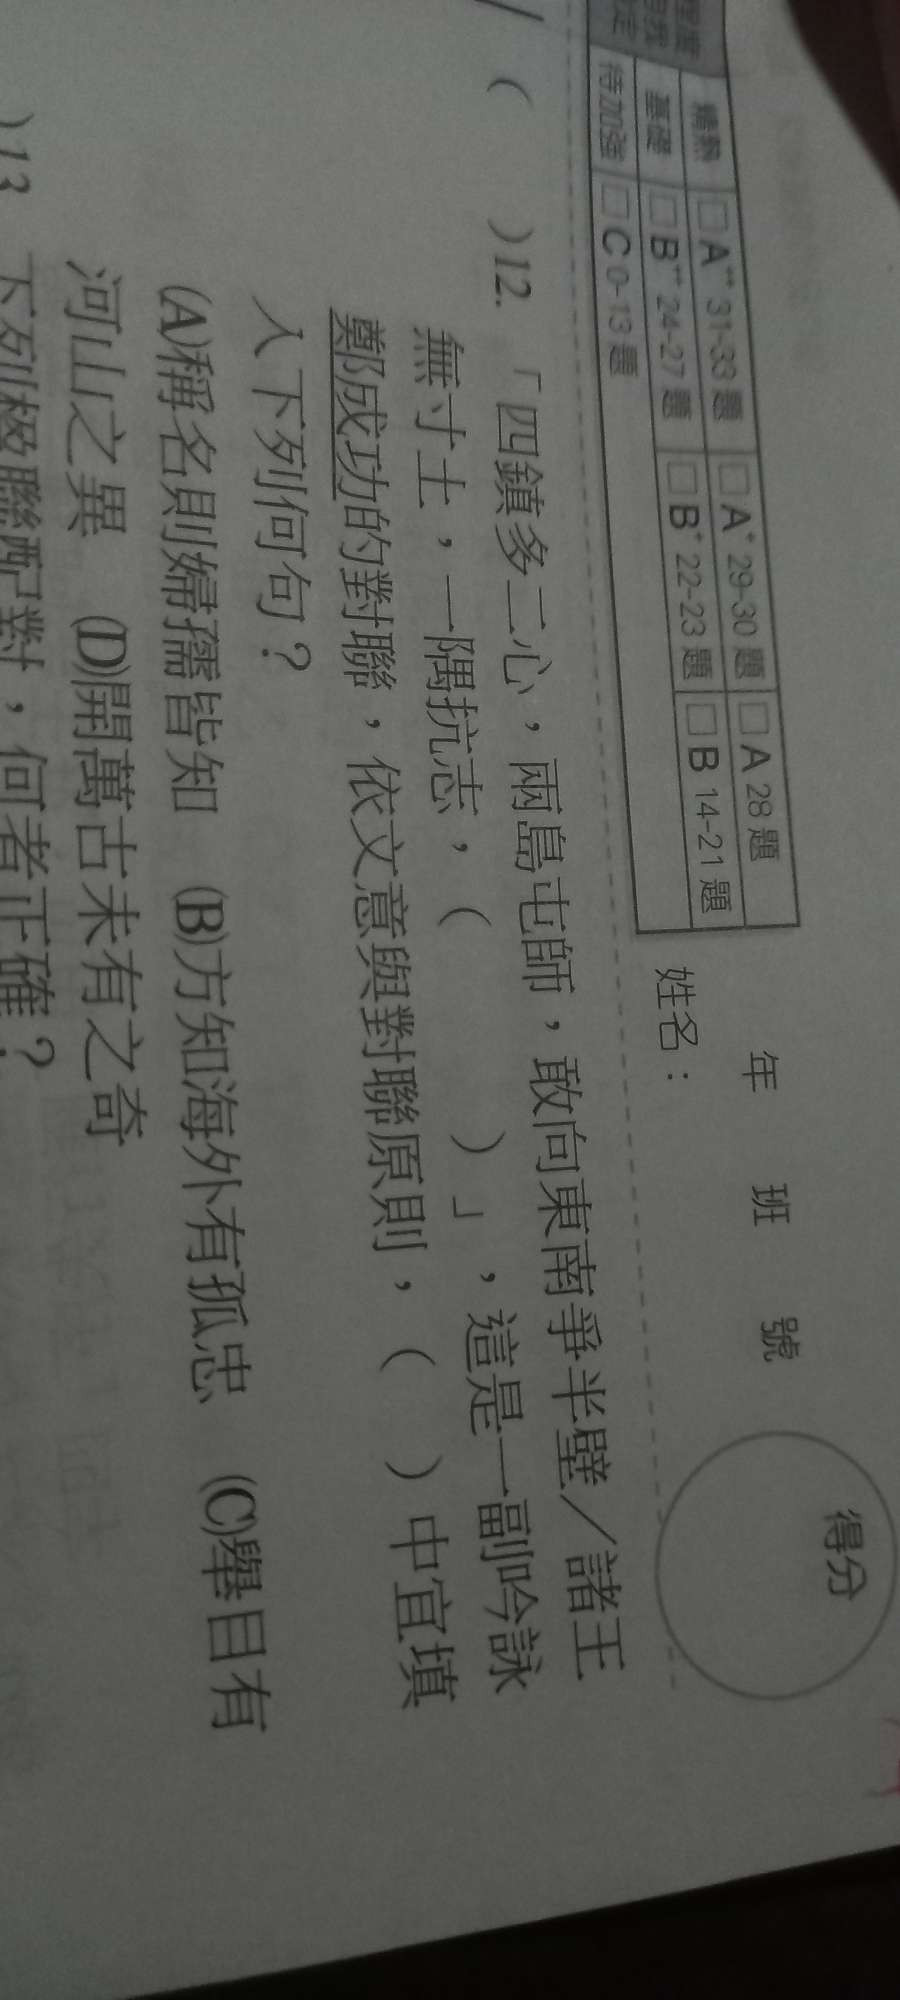 精熟 □A++ 31-33 題 □A+ 29-30 題 □A 28 題
基礎 □B++ 24-27 題 □B+ 22-23 題 □B 14-21 題
待加強 □C 0-13 題
年 班 號
姓名：
得分
( )12.「四鎮多二心，兩島屯師，敢向東南爭半壁／諸王
無寸土，一隅抗志，( )」，這是一副吟詠
鄭成功的對聯，依文意與對聯原則，( )中宜填
入下列何句？
(A)稱名則婦孺皆知 (B)方知海外有孤忠 (C)舉目有
河山之異 (D)開萬古未有之奇
)13 下列楹聯配對，何者正確？